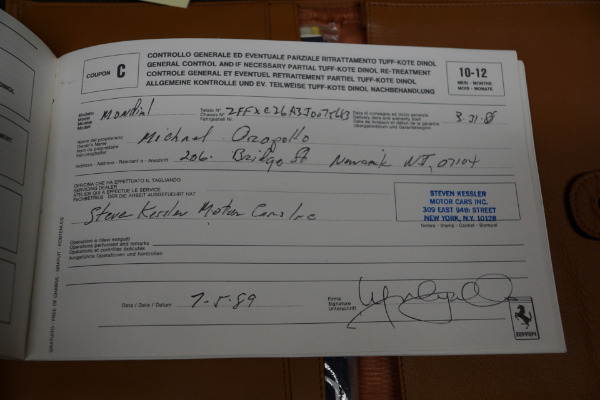 COUPON C
CONTROLLO GENERALE ED EVENTUALE PARZIALE RITRATTAMENTO TUFF-KOTE DINOL
GENERAL CONTROL AND IF NECESSARY PARTIAL TUFF-KOTE DINOL RE-TREATMENT
CONTROLE GENERAL ET EVENTUEL RETRAITEMENT PARTIEL TUFF-KOTE DINOL
ALLGEMEINE KONTROLLE UND EV. TEILWEISE TUFF-KOTE DINOL NACHBEHANDLUNG
10-12
MESI - MONTHS
MOIS - MONATE
Modello
Model
Modèle
Modell
Mondial
Telaio N°
Chassis N°
Fahrgestell Nr.
Data di consegna ed inizio garanzia
Delivery date and warranty start
3.31.88
Nome del proprietario
Owner's Name
Nom du propriétaire
Michael
Address
206 Bridge St Newark NJ, 07104
OFFICINA CHE HA EFFETTUATO IL TAGLIANDO
SERVICING DEALER
ATELIER QUI A EFFECTUE LE SERVICE
FACHBETRIEB, DER DIE ARBEIT AUSGEFUEHRT HAT
Steve Kessler Motor Cars Inc
STEVEN KESSLER
MOTOR CARS INC.
309 EAST 94th STREET
NEW YORK, N.Y. 10128
Timbro - Stamp - Cachet - Stempel
Operazioni e rilievi eseguiti
Operations performed and remarks
Opérations et contrôles exécutés
Ausgeführte Operationen und Kontrollen
Data / Date / Datum
7-5-89
Firma
Signature
Unterschrift
FERRARI
GRATUITO - FREE OF CHARGE - GRATUIT - KOSTENLOS